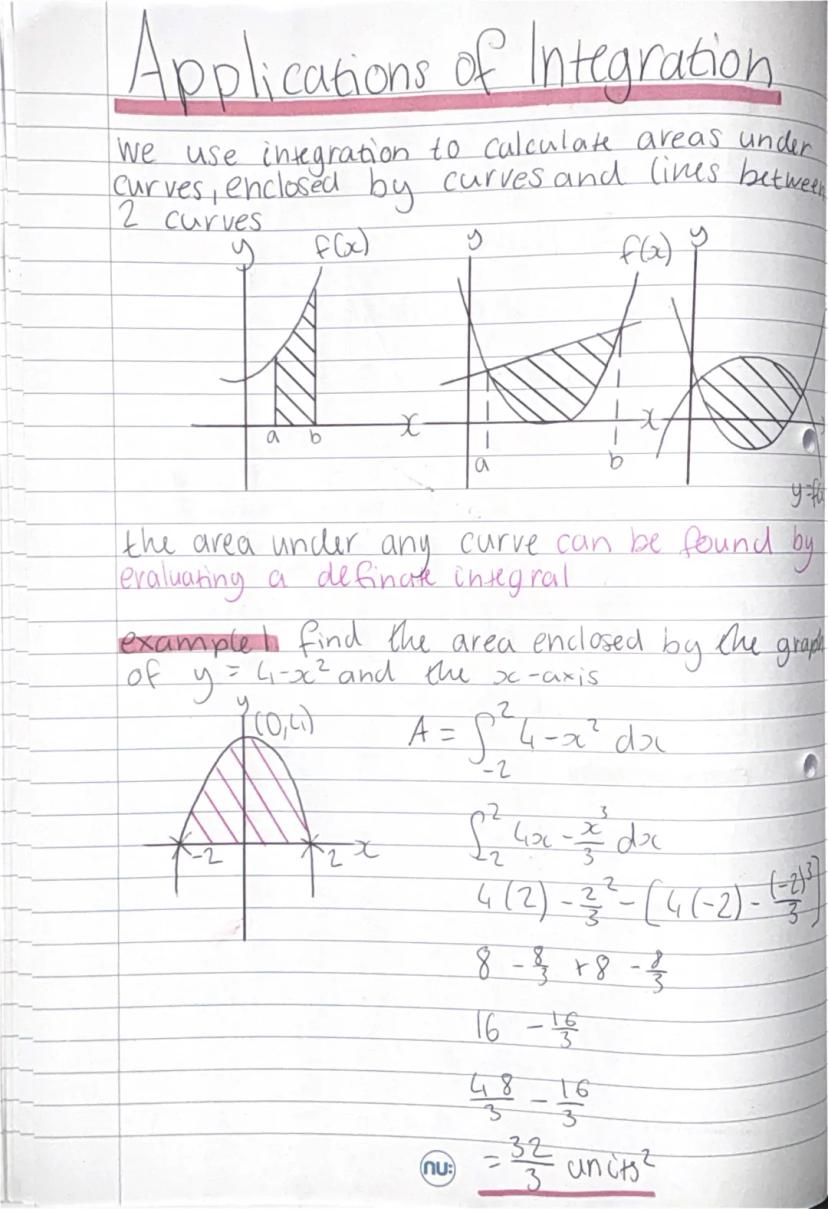 Applications of Integration
we use integration to calculate areas under
curves, enclosed by curves and lines between
2 curves
y f(x) y f(x) y
x x
a b a b
y=f(
the area under any curve can be found by
evaluating a definate integral
example 1 find the area enclosed by the graph
of y = 4-x² and the x-axis
y
(0,4)
-2 2 x
A = ∫₋₂² 4-x² dx
∫₋₂² 4x - x³/3 dx
4(2) - 2²/3 - [4(-2) - (-2)³/3]
8 - 8/3 + 8 - 8/3
16 - 16/3
48/3 - 16/3
= 32/3 units²
nu: